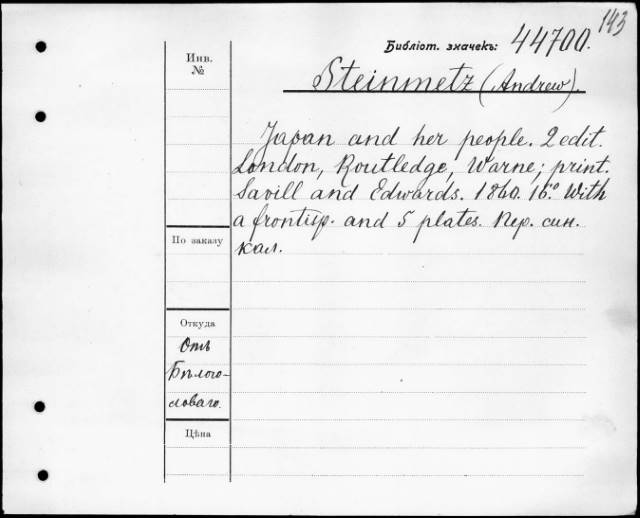 143
Библіот. значекъ: 44700.
Инв.
№
Steinmetz (Andrew).
Japan and her people. 2 edit.
London, Routledge, Warne; print.
Savill and Edwards. 1860. 16.º With
a frontisp. and 5 plates. Пер. син.
кал.
По заказу
Откуда
Отъ
Бѣлого-
словаго.
Цѣна